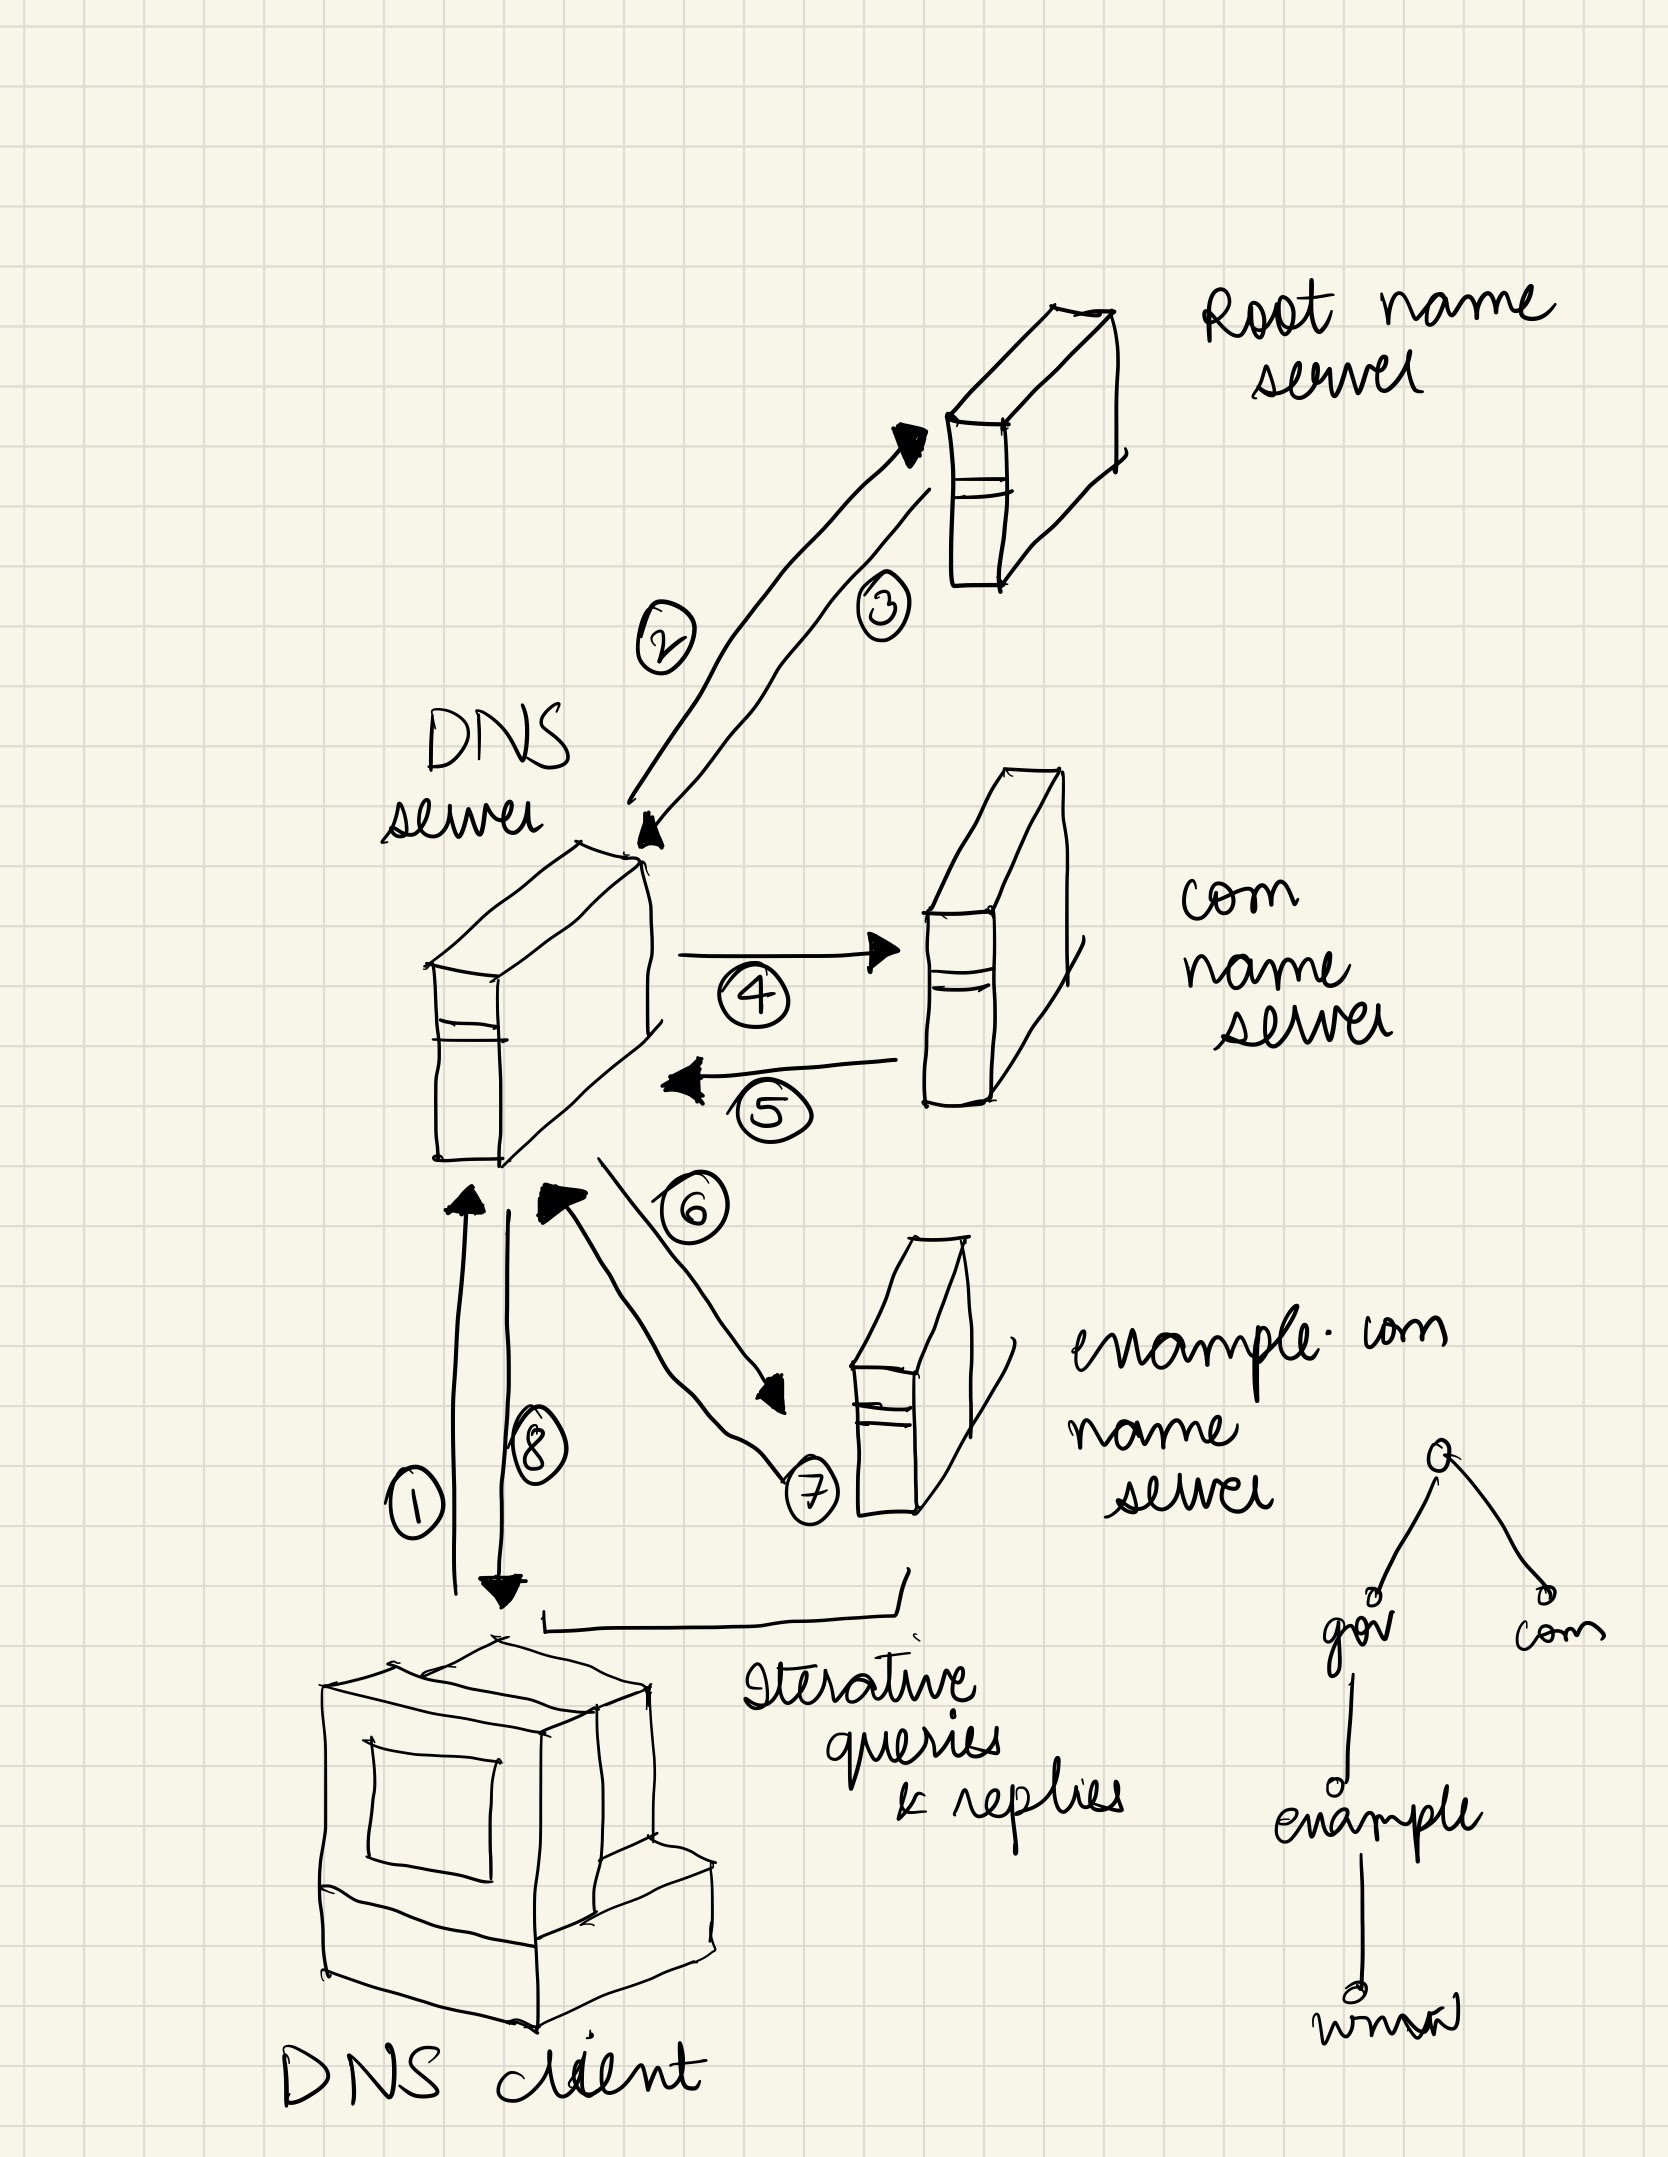 Root name
server
2
3
DNS
server
com
name
server
4
5
6
example.com
name
server
8
1
7
gov
com
Iterative
queries
& replies
example
DNS client